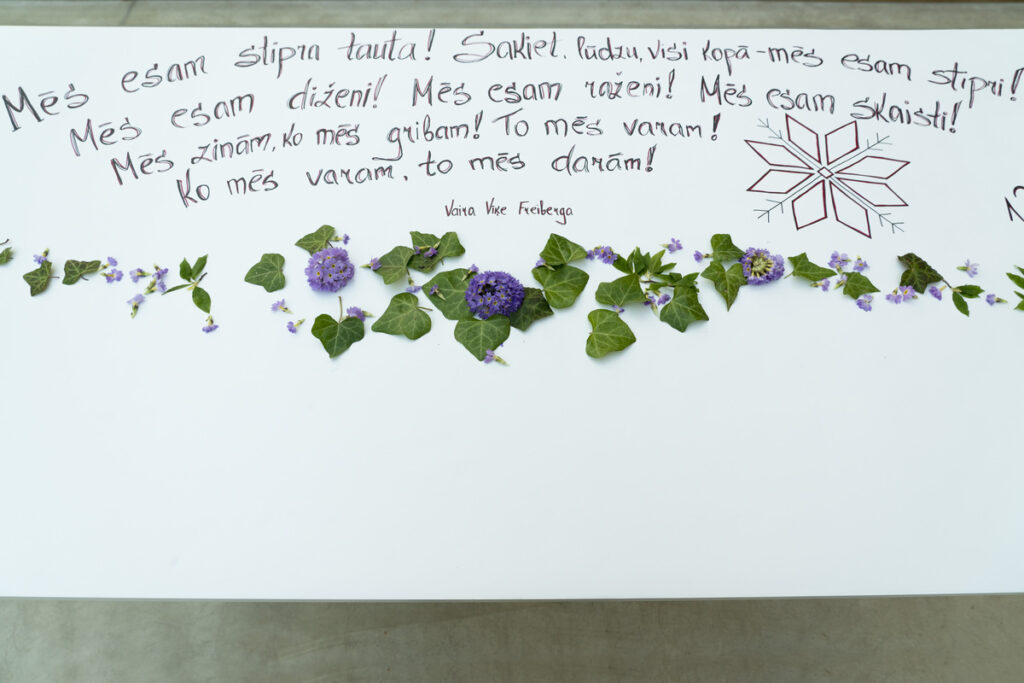 Mēs esam stipra tauta! Sakiet, lūdzu, visi kopā - mēs esam stipri!
Mēs esam diženi! Mēs esam raženi! Mēs esam skaisti!
Mēs zinām, ko mēs gribam! To mēs varam!
Ko mēs varam, to mēs darām!
Vaira Vīķe Freiberga